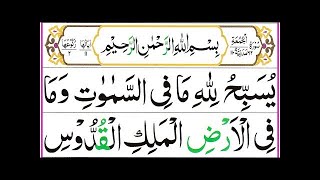 سُورَةُ الْجُمُعَةِ
بِسْمِ اللهِ الرَّحْمٰنِ الرَّحِيْمِ
يُسَبِّحُ لِلهِ مَا فِى السَّمٰوٰتِ وَمَا
فِى الْاَرْضِ الْمَلِكِ الْقُدُّوْسِ